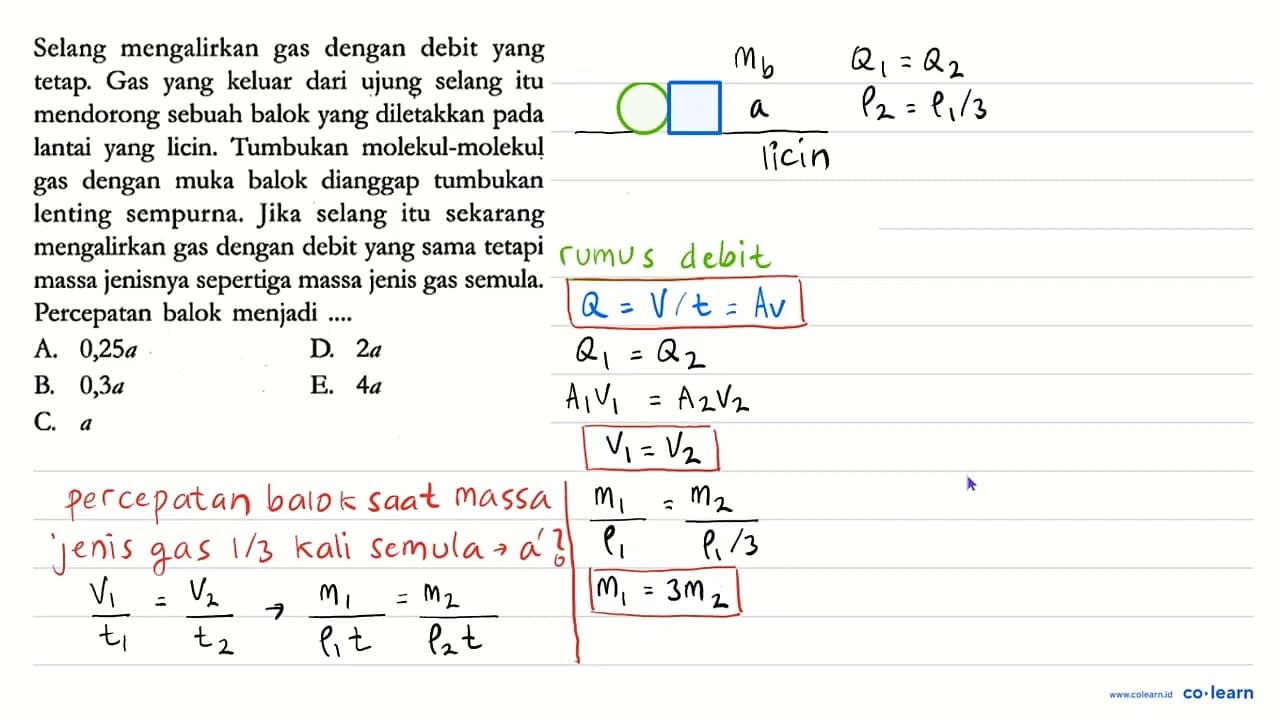 Selang mengalirkan gas dengan debit yang
tetap. Gas yang keluar dari ujung selang itu
mendorong sebuah balok yang diletakkan pada
lantai yang licin. Tumbukan molekul-molekul
gas dengan muka balok dianggap tumbukan
lenting sempurna. Jika selang itu sekarang
mengalirkan gas dengan debit yang sama tetapi
massa jenisnya sepertiga massa jenis gas semula.
Percepatan balok menjadi ....
A. 0,25a
B. 0,3a
C. a
D. 2a
E. 4a
m_b
a
licin
Q₁ = Q₂
ρ₂ = ρ₁/3
rumus debit
Q = V/t = Av
Q₁ = Q₂
A₁V₁ = A₂V₂
V₁ = V₂
percepatan balok saat massa
jenis gas 1/3 kali semula → a'?
V₁/t₁ = V₂/t₂ → m₁/ρ₁t = m₂/ρ₂t
m₁/ρ₁ = m₂/ρ₁/3
m₁ = 3m₂
www.colearn.id co·learn